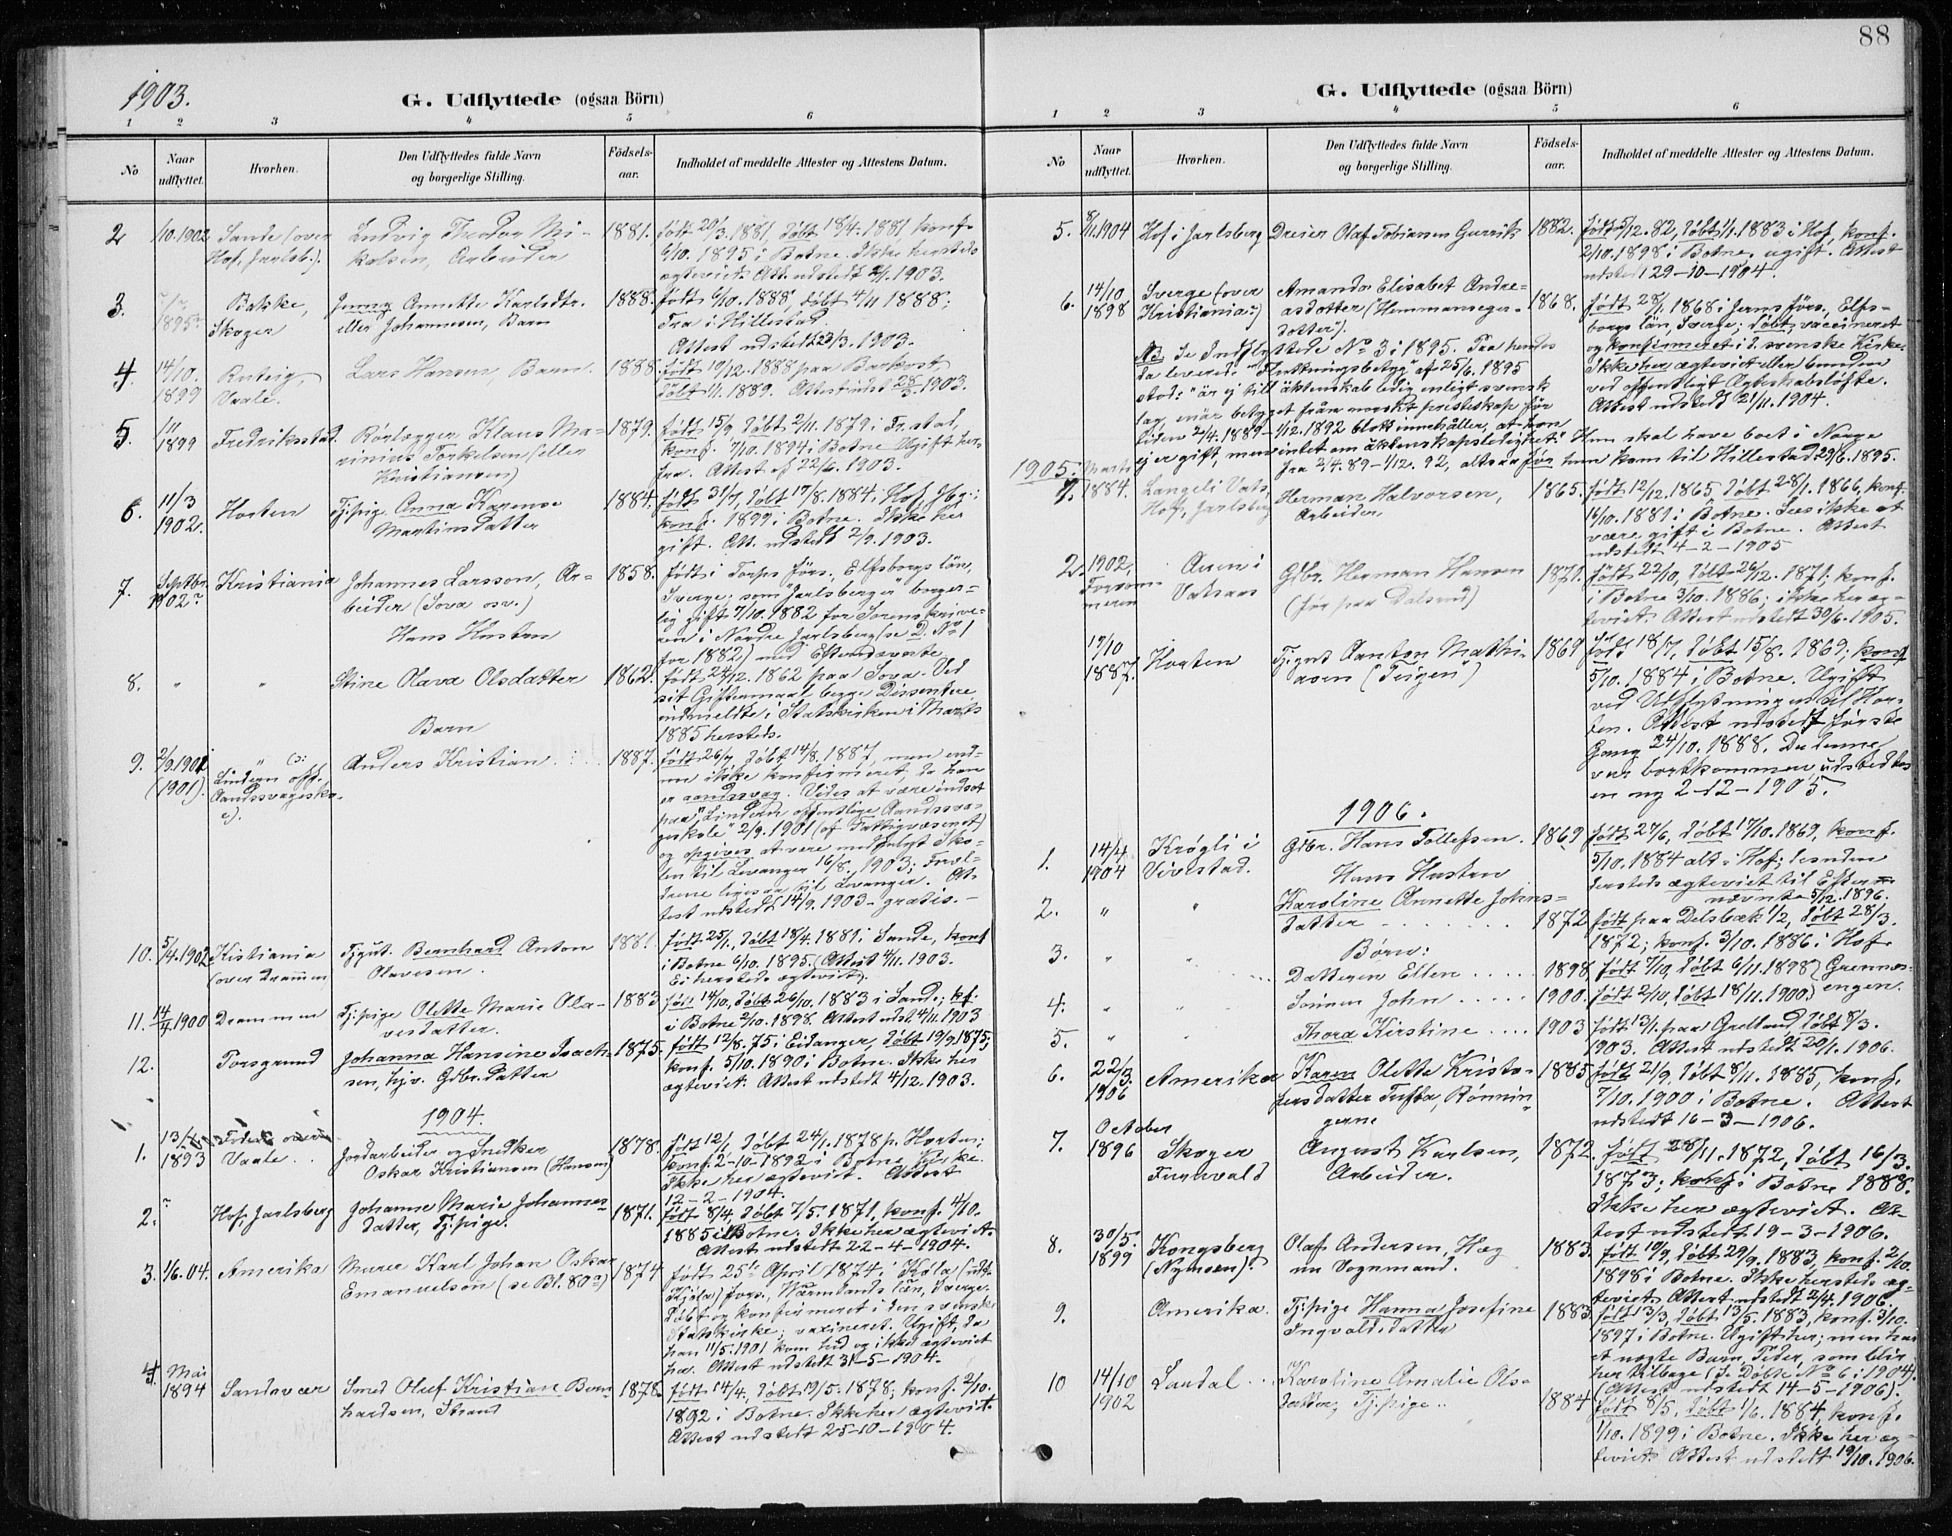 88
1903.
G. Udflyttede (ogsaa Börn)
1 2 3 4 5 6
No
Naar udflyttet.
Hvorhen.
Den Udflyttedes fulde Navn og borgerlige Stilling.
Födsels-aar.
Indholdet af meddelte Attester og Attestens Datum.
2 /10.1902 Sande (over Ludvig Theodor Mi- 1881. født 20/3.1881, døbt 18/4.1881 konf.
Hof. Jarlsb.). kalsen, Arbeider 6/10.1895 i Botne. Ikke hersteds
ægteviet. Att. udstedt 2/1.1903.
3. 1895 Bakke, Jenny Annette Karlsdtr. 1888. født 6/10.1888, døbt 4/11 1888;
Skoger eller Johannesen, Barn Fra i Hillestad
Attest udstedt 23/3.1903.
4. 14/10. Lars Hansen, Barn. 1888. født 19/12.1888 paa Barkost,
1899 Vaale. døbt 1/1.1889. Attest udst 28/3.1903.
5. 1899 Fredriksstad. Rørlægger Klaus Ma- 1879. født 15/9 døbt 2/11.1879 i Fr.stad,
rinius Torkelsen (eller konf. 7/10.1894 i Botne. Ugift her-
Kristiansen) fra. Attest af 22/6.1903.
6. 11/3 Horten Tj.pig. Anna Karense 1884. født 31/7, døbt 17/8.1884, Hof, Jbg.;
1902. Martinsdatter konf. 1899 i Botne. Ikke her
gift. Att. udstedt 2/9.1903.
7. Septbr. Kristiania Johannes Larsson, Ar- 1858. født i Torps förs., Elfsborgs län,
1902? beider (Sova osv.) Sverge; som "Jarlsberger" borger-
Hans Hustru lig gift 7/10.1882 for Sorenskrive-
ren i Nordre Jarlsberg (se D. No 1
for 1882) med Efternævnte.
8. " " Stine Olava Olsdatter 1862. født 24/12.1862 paa Sova. Ved
sit Giftermaal begge Dissentere,
Barn indmeldte i Statskirken i Marts
1885 hersteds.
9. 2/9.1901 " Anders Kristian 1887. født 26/7, døbt 14/8.1887, men end-
(1901). Lindern off. nu ikke konfirmeret, da han
Aandssvagesko- er aandssvag. Vides at være indsat
e). paa "Lindern offentlige Aandssva-
geskole" 2/9.1901 (af Fattigvæsenet)
og opgives at være medfulgt Sko-
len til Levanger 16/8.1903; Foræl-
drene ligesaa til Levanger. At-
test udstedt 14/9.1903 - gratis. -
10. 5/4.1902 Kristiania Tj.gut. Bernhard Anton 1881. født 25/1, døbt 18/4.1881 i Sande, konf
(over Drammen Olavesen. i Botne 6/10.1895. (Attest 4/11.1903.
Ei hersteds ægteviet).
11. 14/4.1900 Drammen Tj.pige Olette Marie Ola- 1883 født 14/10, døbt 26/10.1883 i Sande; kf.
vesdatter. i Botne 2/10.1898. Attest udst. 4/11.1903
12. Porsgrund Johanna Hansine Isach- 1875. født 12/8.75 i Eidanger, døbt 19/9 1875;
sen, hjv. Gdbr.datter konf. 5/10.1890 i Botne. Ikke her
ægteviet. Attest udstedt 4/12.1903.
1904.
1. 13/ Jordarbeider og Snedker 1878. født 12/1, døbt 24/1.1878 p. Horten;
1893 Vaale. Oskar Kristiansen (Hansen) konf. 2-10-1892 i Botne Kirke.
Ikke her ægteviet. Attest
12-2-1904.
2. ? Hof, Jarlsberg Johanne Marie Johannes- 1871. født 8/4, døbt 7/5.1871, konf. 4/10.
datter, Tj.pige. 1885 i Botne. Ikke her ægteviet.
Attest udstedt 22-4-1904.
3. 1/6.04. Amerika Murer Karl Johan Oskar 1874 født 25de April 1874 i Køla (udt.
Emanuelson (se Bl. 80a) Kjøla) förs., Wärmlands län, Sverge.
Døbt og konfirmeret i den svenske
Statskirke; vaxineret. Ugift, da
han 11/5.1901 kom hid og ikke ægteviet
her. Attest udstedt 31-5-1904.
4. Mai Sandsvær Smed Oluf Kristian Bern- 1878. født 14/4, døbt 19/5.1878, konf. 2/10.
1894 hardsen, Strand 1892 i Botne. Ikke her ægteviet.
Attest udstedt 25-10-1904.
G. Udflyttede (ogsaa Börn)
1 2 3 4 5 6
No
Naar udflyttet.
Hvorhen.
Den Udflyttedes fulde Navn og borgerlige Stilling.
Födsels-aar.
Indholdet af meddelte Attester og Attestens Datum.
5. 8/11.1904 Hof i Jarlsberg Dreier Olaf Tobiansen Gurrik 1882. født 5/12.82, døbt 1/1.1883 i Hof, konf.
2/10.1898 i Botne, ugift. Attest
udsted 29-10-1904.
6. 14/10 Sverge (over Amanda Elisabet Andre- 1868. født 28/1.1868 i Jerns förs., Elfs-
1898 Kristiania?) asdotter ("Hemmanseger- borgs län, Sverge; døbt, vaccineret
dotter"). og konfirmeret i d. svenske Kirke.
NB. Se Indflyttede No 3 i 1895. Fra hendes Ikke her ægteviet eller bunden
da levered. "Fluttningsbetyg" af 25/6.1895 ved offentligt Ægteskabsløfte.
stod: "är ej till äktenskab ledig enligt svensk Attest udstedt 21/11.1904.
lag, enär betyget från norskt presteskap för
tiden 2/4.1889-1/12.1892 blott innehåller, at hon
ej er gift, men intet om äktenskapsledighet." Hun skal have boet i Norge
fra 2/4.89-1/12.92, altsaa før hun kom til Hillestad 29/6.1895.
1905.
1. Marts Langeli Vats, Herman Halvorsen, 1865. født 12/12.1865, døbt 28/1.1866, konf.
1884. Hof, Jarlsberg Arbeider 16/10.1881 i Botne. Sees ikke at
være gift i Botne. Attest
udstedt 4-2-1905
2. 1902, i Gdbr. Herman Hansen 1871. født 22/10, døbt 26/12.1871; konf.
Forsom- Vatsaas (før paa Dalsrud) i Botne 3/10.1886; ikke her æg-
meren teviet. Attest udstedt 30/6.1905.
17/10 Horten Tj.gut Aanton Mathi- 1869 født 18/7, døbt 15/8.1869; konf
1887. asen ("Teigen") 5/10.1884 i Botne. Ugift
ved Udflytningen til Hor-
ten. Attest udstedt første
Gang 24/10.1888. Da denne
var bortkommen udstedtes
en ny 2-12-1905.
1906.
1. 14/4 Krøgli i Gdbr. Hans Tollefsen. 1869 født 27/6, døbt 17/10.1869, konf.
1904 Vivestad. Hans Hustru 5/10.1884 alt i Hof;
hersteds ægteviet til Efter-
nævnte 5/12.1896.
2. " " Karoline Annette Johns-
datter 1872 født paa Delsbæk 1/2, døbt 28/3.
Børn: 1872; konf. 3/10.1886 i Hof.
3. " " Datteren Ellen 1898 født 7/10, døbt 6/11.1898 Grønnes-
4. " " Sønnen John 1900. født 2/10, døbt 18/11.1900. engen.
5. " " Thora Kirstine 1903 født 13/1. paa Grelland, døbt 8/3.
1903. Attest udstedt 20/1.1906.
6. 22/3. Amerika Karen Olette Kristo- 1885 født 21/9, døbt 8/11.1885, konf.
1906 fersdatter Tufta, Rønnin- 7/10.1900 i Botne. Attest
gerne udstedt 16-3-1906.
7. October
1896 Skoger August Karlsen, 1872. født 28/11.1872, døbt 16/3.
Arbeider. 1873; konf. i Botne 1888.
Ikke her ægteviet. At-
test udstedt 19-3-1906.
8. 30/5. Kongsberg Olaf Andersen, Hæg 1883. født 19/9, døbt 29/9.1883, konf. 2/10.
1899 (Nymoen). nu Vognmand. 1898 i Botne. Ikke hersteds æg-
teviet. Attest udstedt 2/4.1906.
9. Amerika. Tj.pige Hanna Josefine 1883. født 13/3, døbt 13/5.1883, konf. 3/10.
Ingvaldsdatter 1897 i Botne. Ugift her; men har
et uægte Barn, Peder, som blir
her tilbage (S. Døbte No 6 i 1904).
(Attest udstedt 14-5-1906).
10 14/10 Laudal Karoline Amalie Ols-
1902 datter, Tj.pige 1884 født 8/5, døbt 1/6.1884, konf.
1/10.1899 i Botne. Ikke her æg-
teviet. Attest udstedt 19/10.1906.